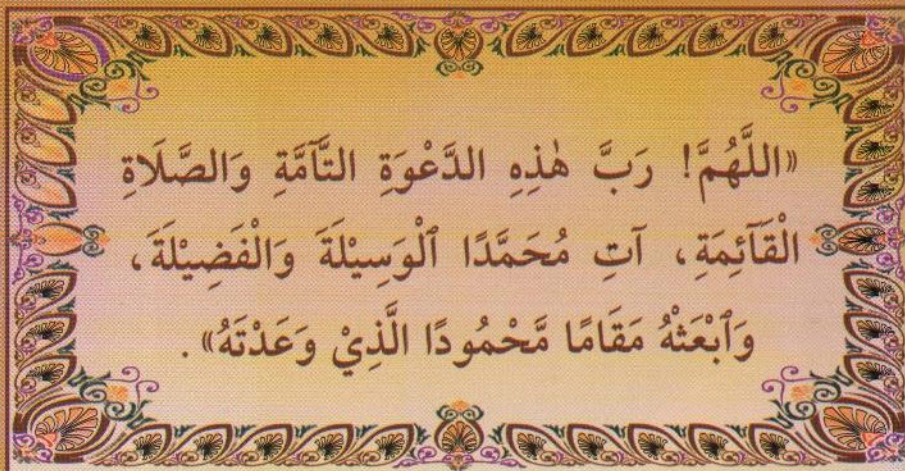 «اللَّهُمَّ! رَبَّ هٰذِهِ الدَّعْوَةِ التَّآمَّةِ وَالصَّلَاةِ
الْقَآئِمَةِ، آتِ مُحَمَّدًا ٱلْوَسِيْلَةَ وَالْفَضِيْلَةَ،
وَٱبْعَثْهُ مَقَامًا مَّحْمُودًا الَّذِيْ وَعَدْتَهُ».